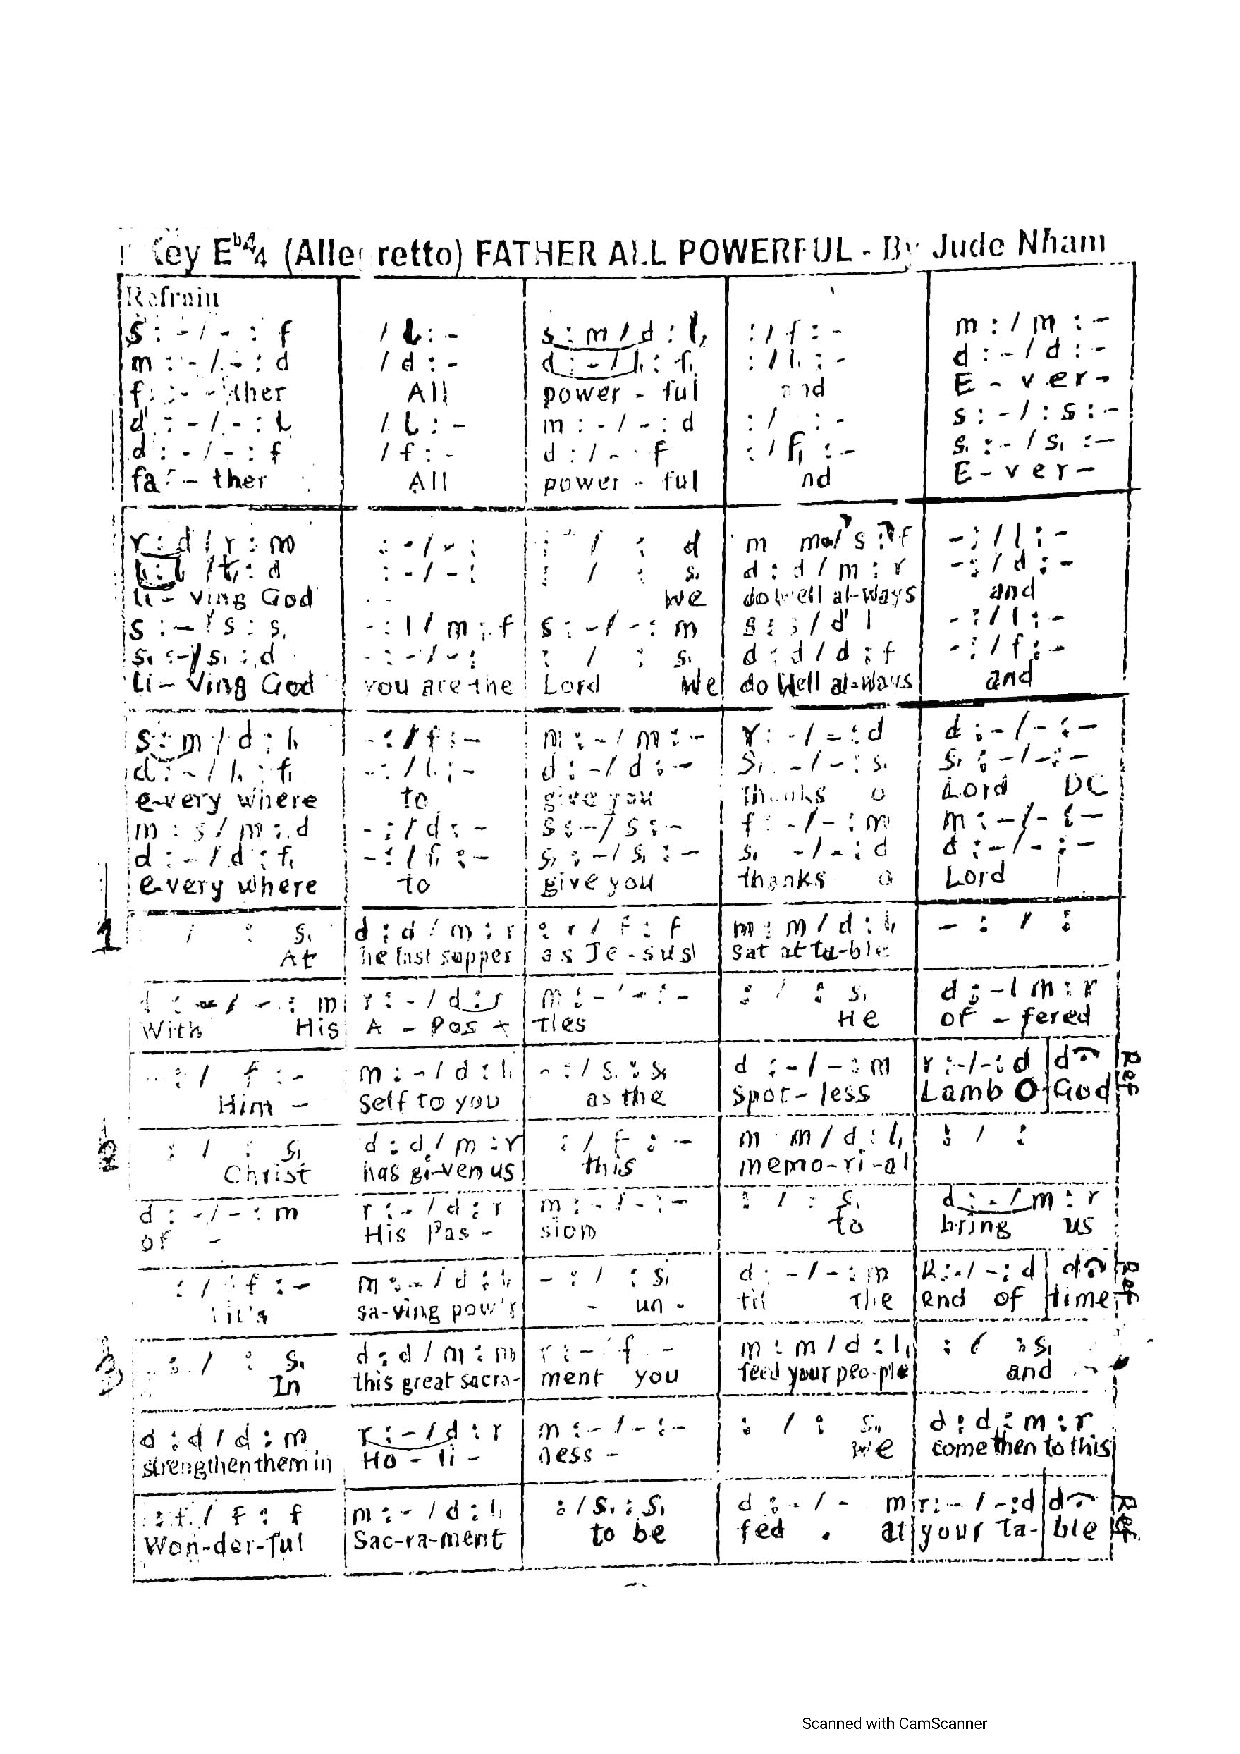 Key Eb 4/4 (Allegretto) FATHER ALL POWERFUL - By Jude Nham
Refrain
s : - / - : f / l : - s : m / d : l, : / f : - m : / m : -
m : - / - : d / d : - d : - / l, : f, : / l, : - d : - / d : -
f - ther All power - ful and E - ver -
d' : - / - : l / l : - m : - / - : d : / : - s : - / : s : -
d : - / - : f / f : - d : / - f : / f, : - s, : - / s, : -
fa - ther All power - ful nd E - ver -
r : d / r : m : - / - : : / : d m m / s : f - : / l : -
l, : l, / t, : d : - / - : : / : s, d : d / m : r - : / d : -
li - ving God We do well al-ways and
s : - / s : s, - : l / m : f s : - / - : m s : s / d' l - : / l : -
s, : - / s, : d - : - / - : : / : s, d : d / d : f - : / f : -
Li - Ving God you are the Lord We do Well al-ways and
s : m / d : l, - : / f : - m : - / m : - r : - / - : d d : - / - : -
d : - / l, : f, - : / l, : - d : - / d : - s, : - / - : s, s, : - / - : -
e-very where to give you thanks o Lord DC
m : s / m : d - : / d : - s : - / s : - f : - / - : m m : - / - : -
d : - / d : f, - : / f, : - s, : - / s, : - s, - / - : d d : - / - : -
e-very where to give you thanks o Lord
1 / : s, d : d / m : r : r / f : f m : m / d : l, - : / :
At he last supper as Je-sus sat at ta-ble
: - / - : m r : - / d : r m : - / - : - : / : s, d : - / m : r
With His A - Pos t Tles He of - fered
: / f : - m : - / d : l, - : / s, : s, d : - / - : m r : - / - : d d Ref
Him - Self to you as the Spot - less Lamb O God
2 : / : s, d : d / m : r : / f : - m m / d : l, : / :
Christ has gi-ven us this memo-ri-al
d : - / - : m r : - / d : r m : - / - : - : / : s, d : - / m : r
of - His Pas - sion to bring us
: / f : - m : - / d : l, - : / : s, d : - / - : m R : - / - : d d Ref
it's sa-ving pow'r - un - til The end of time
3 : / : s, d : d / m : m r : - f - m : m / d : l, : / : s,
In this great sacra- ment you feed your peo-ple and
d : d / d : m r : - / d : r m : - / - : - : / : s, d : d : m : r
strengthen them in Ho - li - ness - We come then to this
: f / f : f m : - / d : l, : / s, : s, d : - / - m r : - / - : d d Ref
Won-der-ful Sac-ra-ment to be fed . at your ta- ble
Scanned with CamScanner